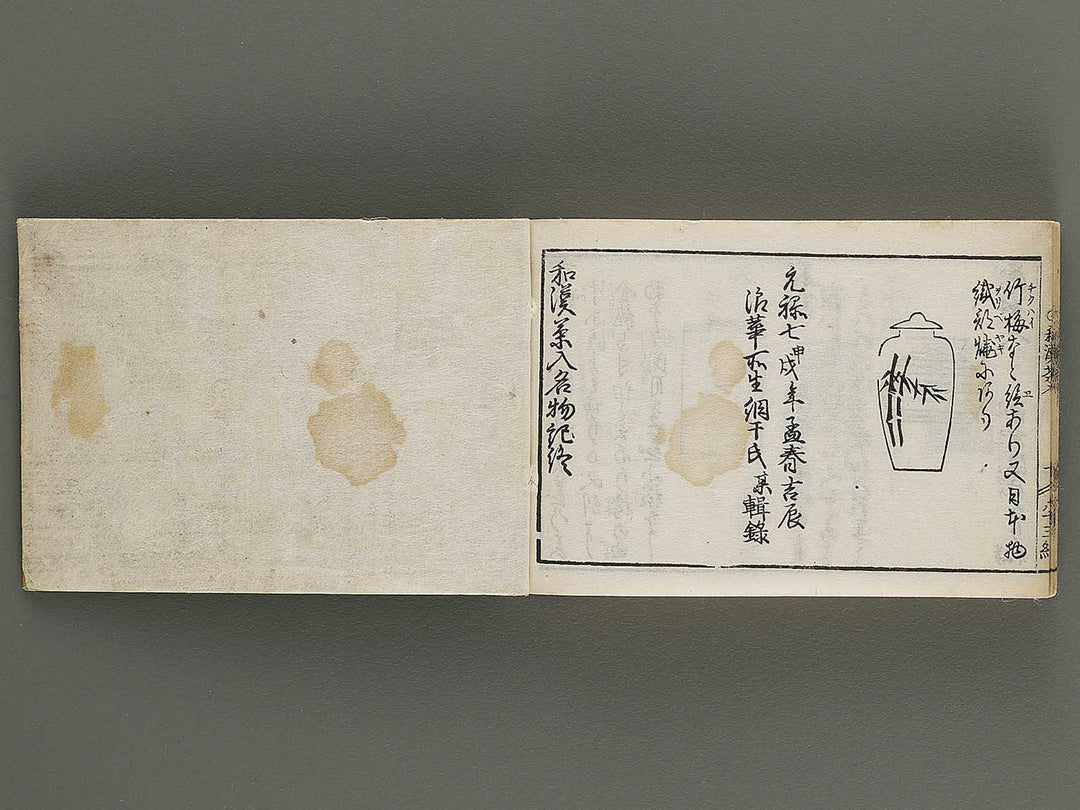 竹梅なと絵あり又日本物
織部焼にあり
元禄七甲戌年孟春吉辰
浪華所生網干氏某輯錄
和漢茶入名物記終